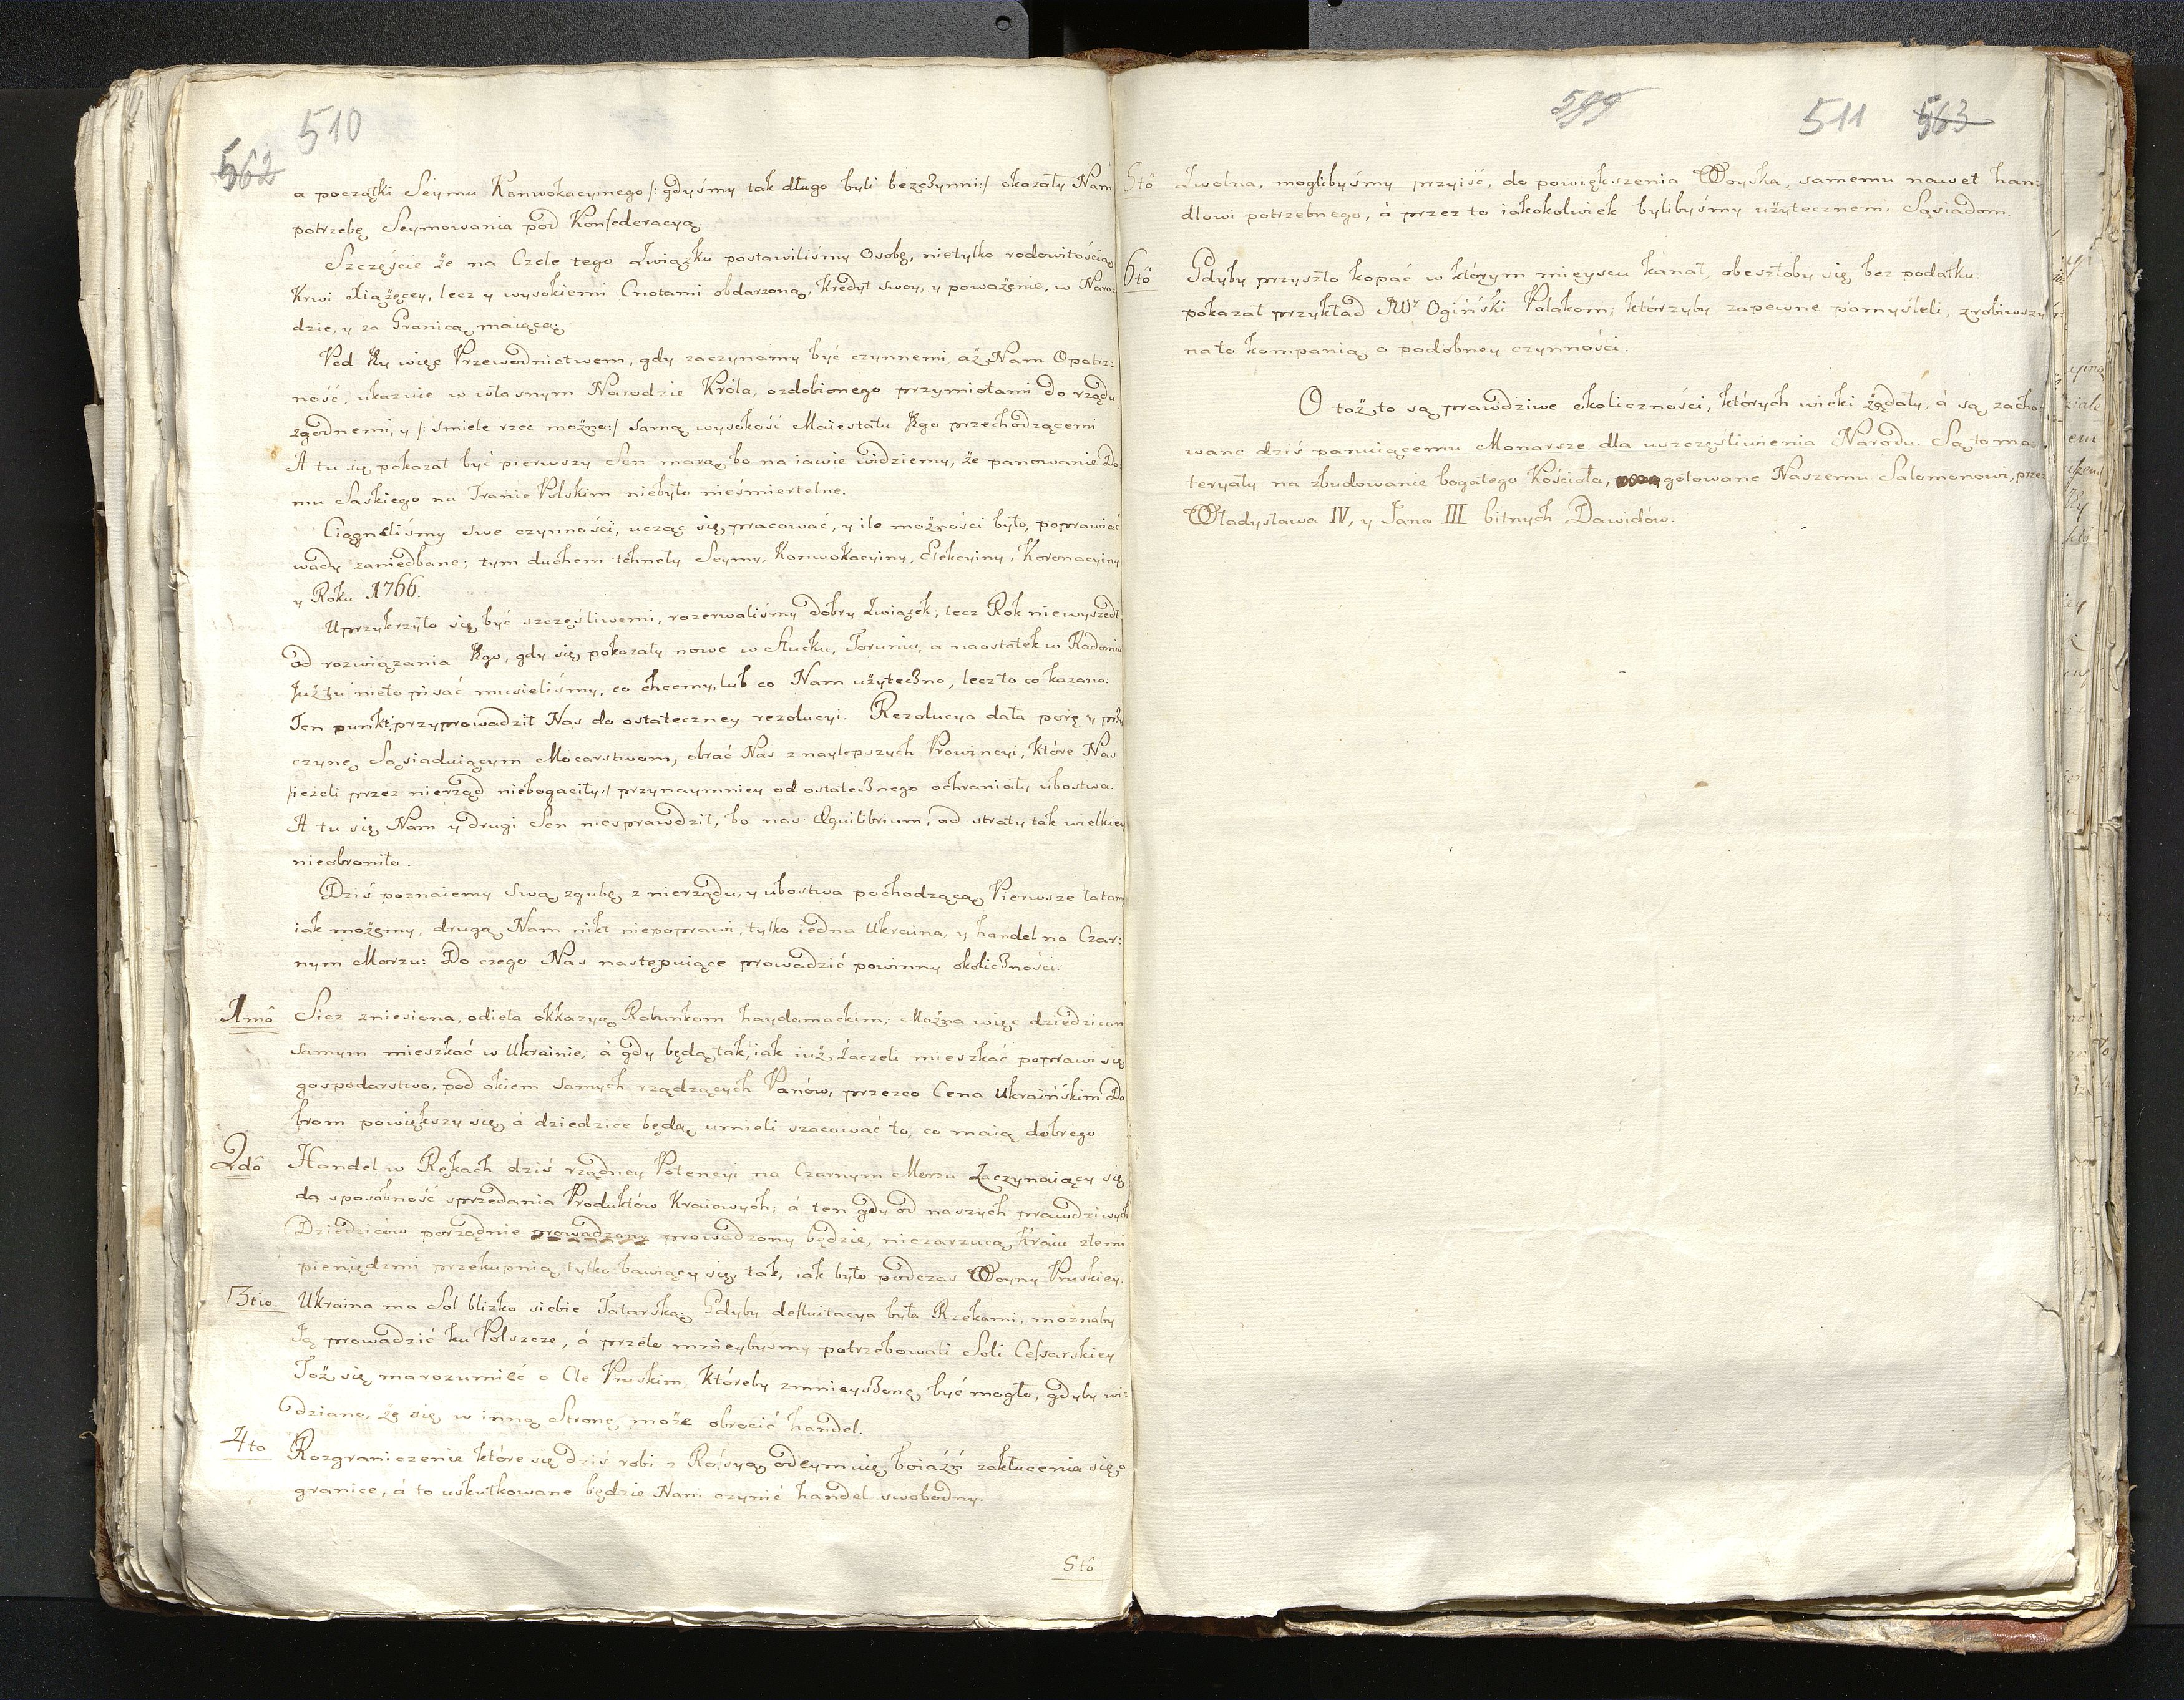 510
562
a początki Seymu Konwokacyinego /: gdyśmy tak długo byli bezczynni :/ okazały Nam
potrzebę Seymowania pod Konfederacyą.
Szczęście że na Czele tego Związku postawiliśmy Osobę, nietylko rodowitością
Krwi Xiążęcey, lecz y wysokiemi Cnotami obdarzoną, kredyt swoy, y poważenie, w Naro:
dzie, y za Granicą maiącą.
Pod Jey więc Przewodnictwem, gdy zaczynamy być czynnemi, aż Nam Opatrz:
ność, ukazuie w własnym Narodzie Króla, ozdobionego przymiotami do rządu
zgodnemi, y /: smiele rzec można :/ samą wysokość Maiestatu Jego przechodzącemi
A tu się pokazał być pierwszy Sen marą, bo na iawie widziemy, że panowanie Do
mu Saskiego na Tronie Polskim niebyło nieśmiertelne.
Ciągneliśmy swe czynności, ucząc się pracować, y ile możności było, poprawiać
wady zaniedbane; tym duchem tchneły Seymy, Konwokacyiny, Elekcyiny, Koronacyiny
y Roku 1766.
Uprzykrzyło się być szczęśliwemi, rozerwaliśmy dobry Związek; lecz Rok niewyszedł
od rozwiązania Jego, gdy się pokazały nowe w Słucku, Toruniu, a naostatek w Radomiu
Już tu nieto pisać musieliśmy, co chcemy, lub co Nam użyteczno, lecz to co kazano:
Ten punkt przyprowadził Nas do ostateczney rezolucyi. Rezolucya dała porę y przy
czynę Sąsiaduiącym Mocarstwom, obrać Nas z naylepszych Prowincyi, które Nas
/:ieżeli przez nierząd niebogaciły:/ przynaymniey od ostatecznego ochraniały ubostwa.
A tu się Nam y drugi Sen niesprawdził, bo nas Æquilibrium, od straty tak wielkiey
nieobroniło.
Dziś poznaiemy swą zgubę z nierządu, y ubostwa pochodzącą, Pierwsze łatamy
iak możemy, drugą Nam nikt niepoprawi, tylko iedna Ukraina, y handel na Czar:
nym Morzu: Do czego Nas następuiące prowadzić powinny okoliczności:
1mô Sicz zniesiona, odieła okkazyą Rabunkom haydamackim; Można więc dziedzicom
samym mieszkać w Ukrainie, á gdy będą tak, iak iuż Zaczeli mieszkać poprawi się
gospodarstwo, pod okiem samych rządzących Panów, przezco Cena Ukraińskim Do
brom powiększy się á dziedzice będą umieli szacować to, co maią dobrego.
2dô Handel, w Rękach dziś rządney Potencyi na Czarnym Morzu Zaczynaiący się
da sposobność sprzedania Produktów Kraiowych; á ten gdy od naszych prawdziwych
Dziedziców porządnie prowadzony prowadzony będzie, niezarzucą Kraiu złemi
pieniędzmi przekupnią tylko bawiący się, tak, iak było podczas Woyny Pruskiey.
3tio. Ukraina ma Sol blizko siebie Tatarską. Gdyby defluitacya była Rzekami, możnaby
Ją prowadzić ku Polszcze, á przeto mnieybysmy potrzebowali Soli Cesarskiey
Toż się marozumieć o Cle Pruskim, któreby zmnieyszone być mogło, gdyby wi:
dziano, że się w inną Stronę może obrocić handel.
4to Rozgraniczenie które się dziś robi z Rossyą odeymuię boiaźń zakłucenia się o
granice, á to uskutkowane będzie Nam czynić handel swobodny.
5tô
599
511 563
5tô Zwolna, moglibyśmy przyiść, do powiększenia Woyska, samemu nawet han:
dlowi potrzebnego, á przez to iakokolwiek bylibyśmy użytecznemi Sąsiadom.
6tô Gdyby przyszło kopać w którym mieyscu kanał, obeszłoby się bez podatku:
pokazał przykład JWy Ogiński Polakom; którzyby zapewne pomyśleli, zrobiwszy
na to kompanią o podobney czynności.
O toż to są prawdziwe okoliczności, których wieki żądały, á są zacho:
wane dziś panuiącemu Monarsze dla uszczęśliwienia Narodu. Są to ma:
teryały na zbudowanie bogatego Kościoła, gotowane Naszemu Salomonowi, przez
Władysława IV, y Jana III bitnych Dawidów.